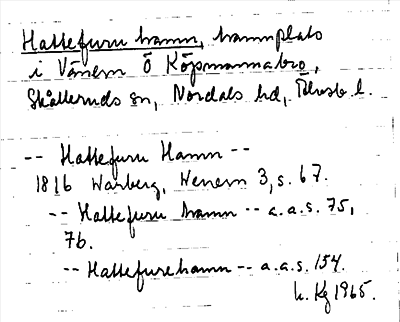 Hattefuru hamn, hamnplats
i Vänern Ö Köpmannabro,
Skålleruds sn, Nordals hd, Älvsb. l.
-- Hattefuru Hamn --
1816 Warberg, Wenern 3, s. 67.
-- Hattefuru hamn -- a.a.s. 75,
76.
-- Hattefurehamn -- a.a.s. 154.
h. Kg 1965.